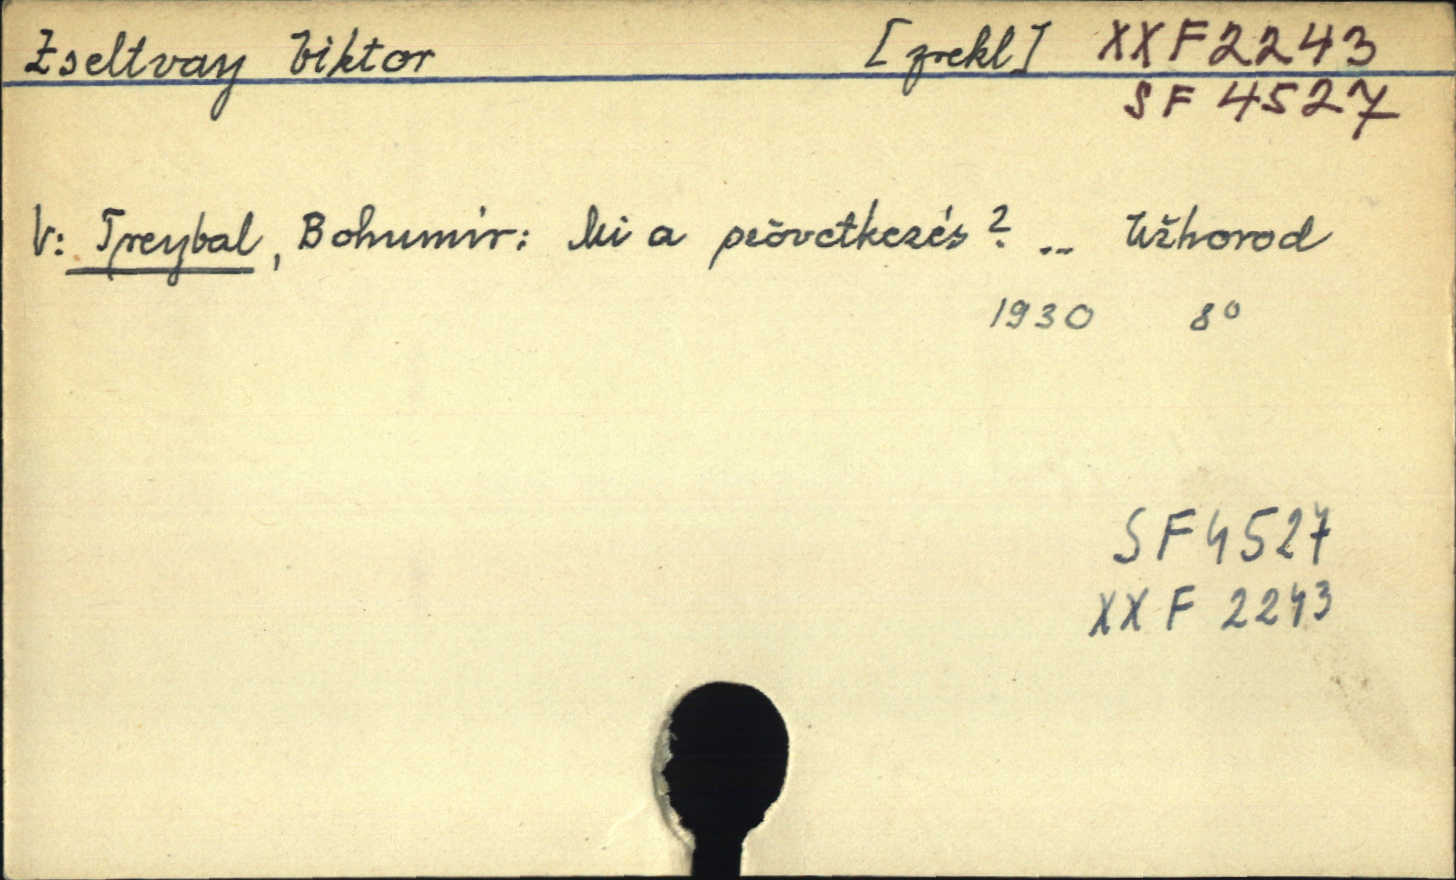 Zseltvay Viktor [překl] XXF2243
SF 4527
V: Treybal, Bohumír: Mi a szövetkezés? .. Užhorod
1930 8°
SF4527
XX F 2243